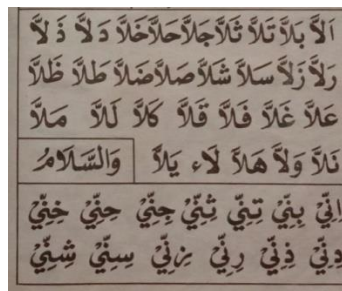 اَلاَّ بَلاَّ تَلاَّ ثَلاَّ جَلاَّ حَلاَّ خَلاَّ دَلاَّ ذَلاَّ
رَلاَّ زَلاَّ سَلاَّ شَلاَّ صَلاَّ ضَلاَّ طَلاَّ ظَلاَّ
عَلاَّ غَلاَّ فَلاَّ قَلاَّ كَلاَّ لَلاَّ مَلاَّ
نَلاَّ وَلاَّ هَلاَّ لَاء يَلاَّ وَالسَّلَامُ
اِنِّيْ بِنِّيْ تِنِّيْ ثِنِّيْ جِنِّيْ حِنِّيْ خِنِّيْ
دِنِّيْ ذِنِّيْ رِنِّيْ زِنِّيْ سِنِّيْ شِنِّيْ